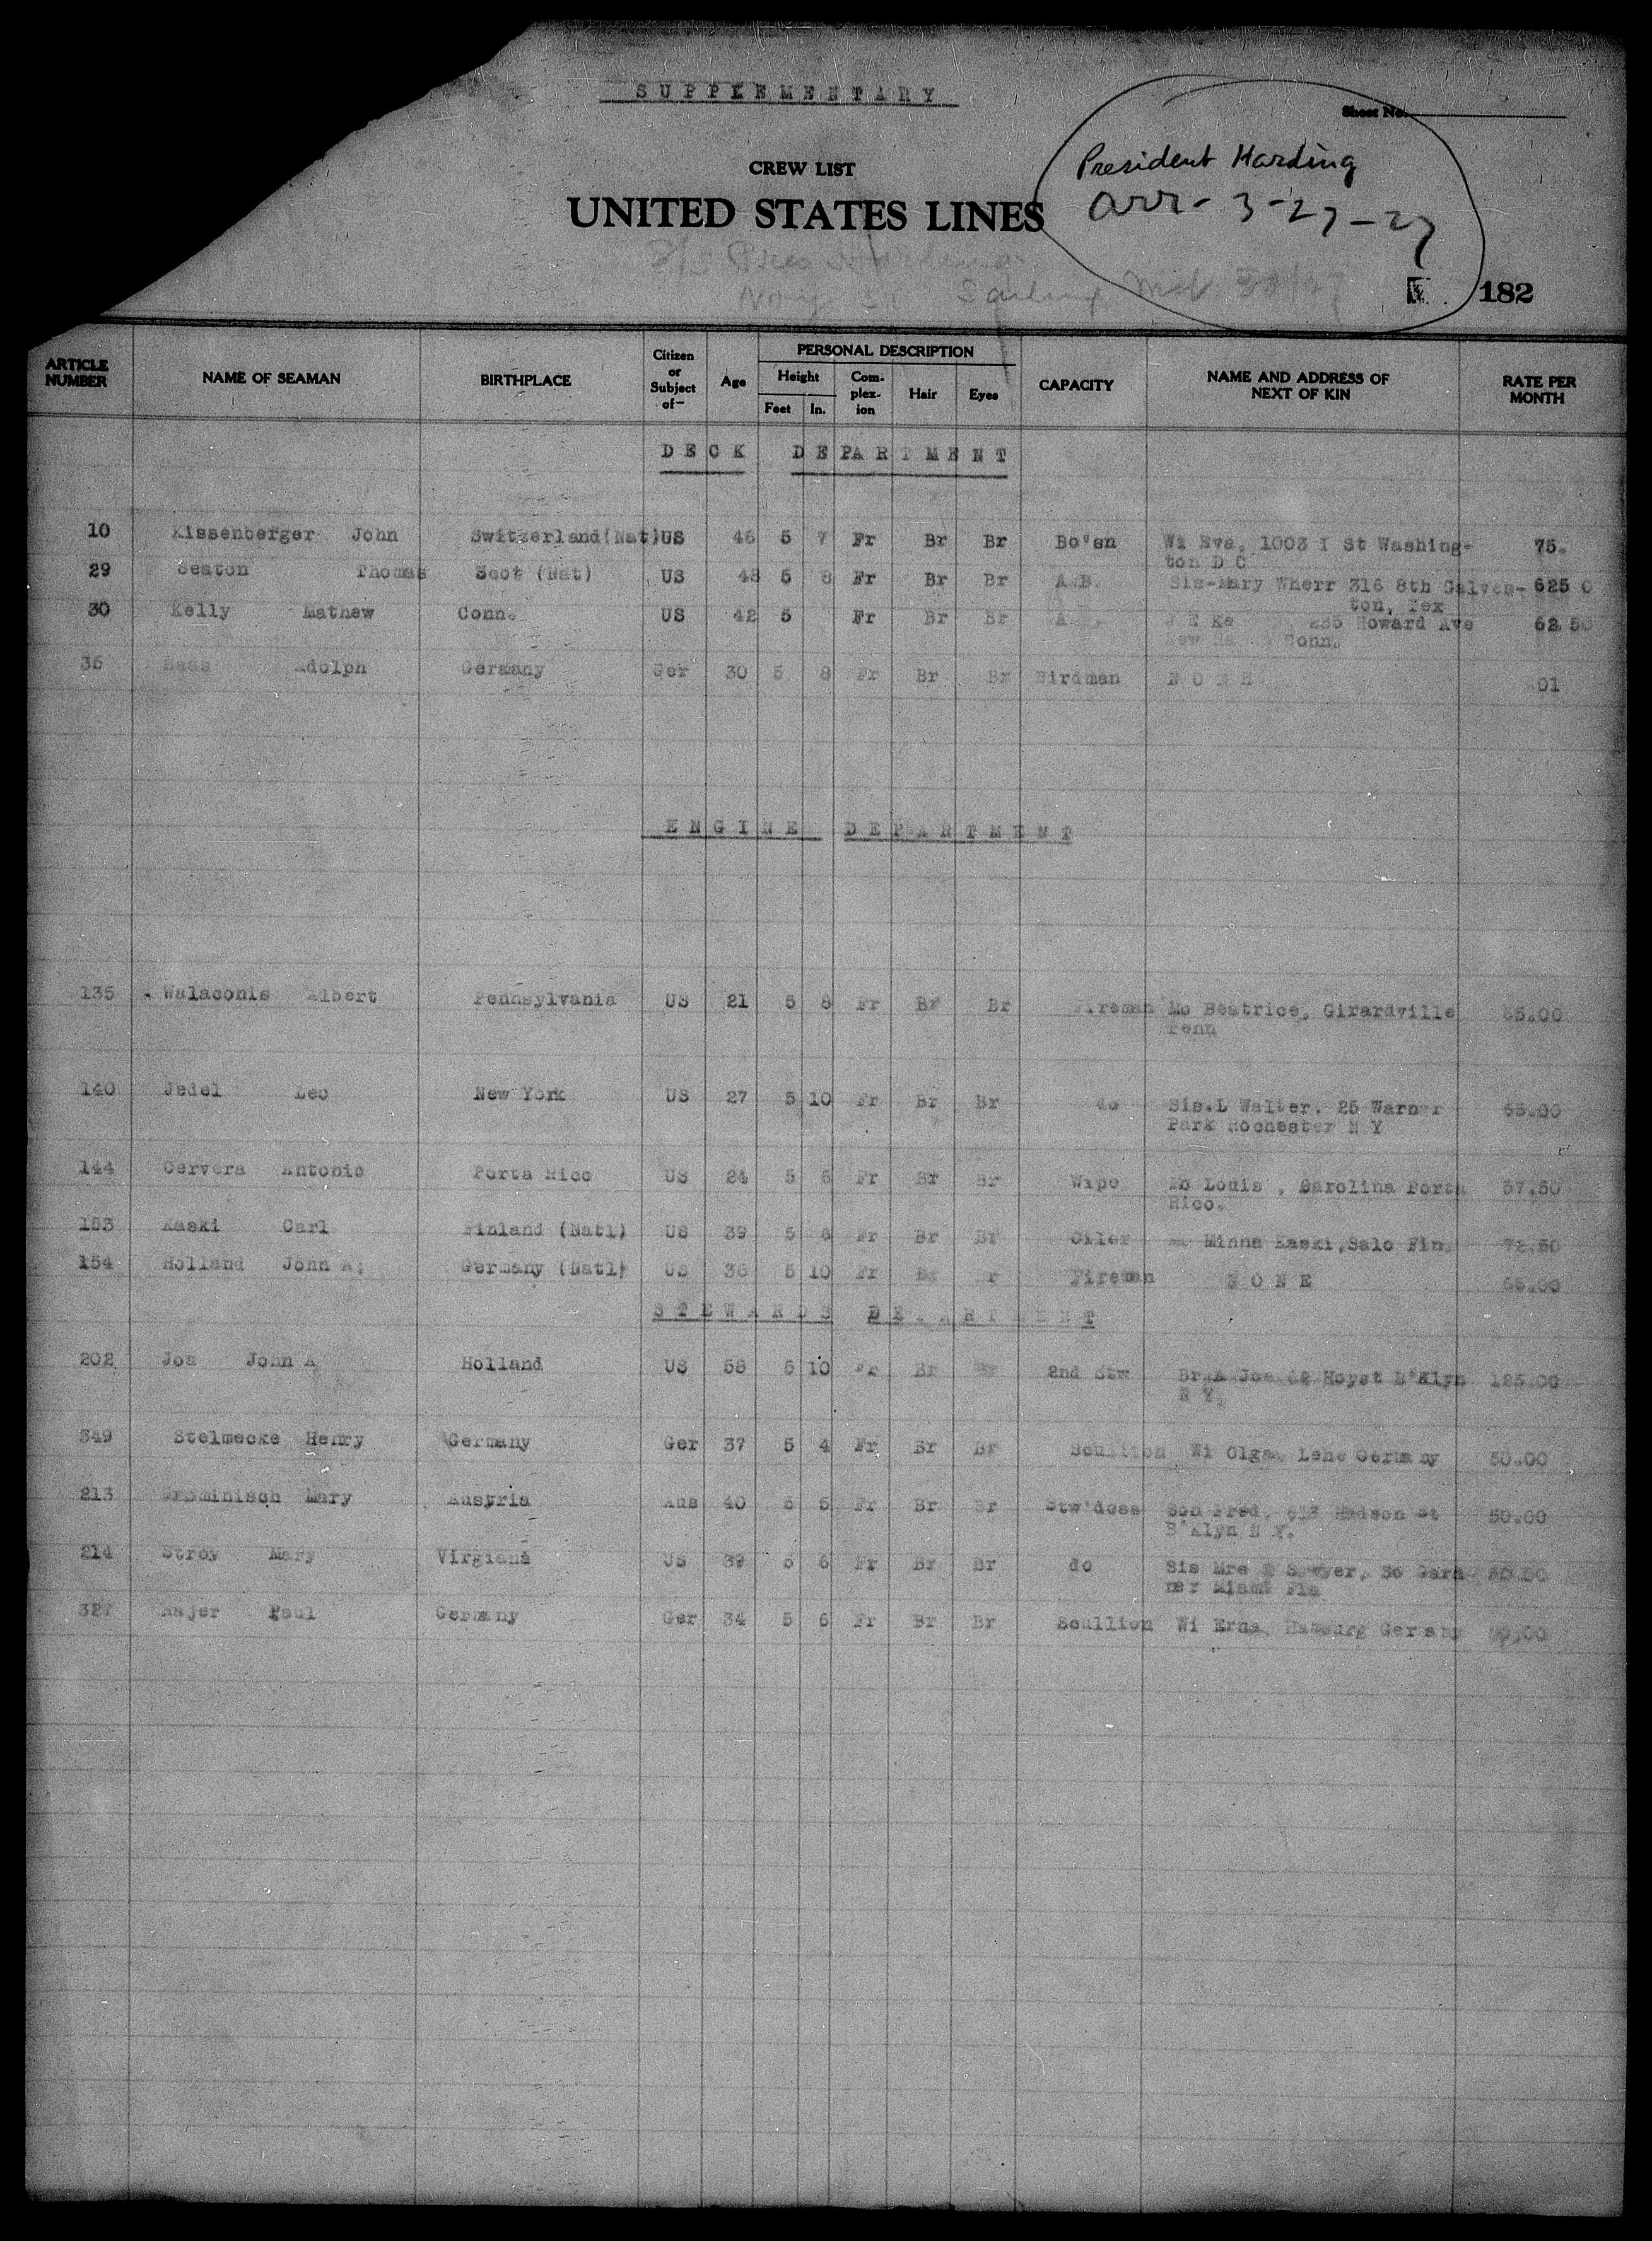 SUPPLEMENTARY
Sheet No.
CREW LIST
UNITED STATES LINES
President Harding
arr- 3-27-27
182
ARTICLE NUMBER NAME OF SEAMAN BIRTHPLACE Citizen or Subject of- Age PERSONAL DESCRIPTION Height Feet In. Com-plex-ion Hair Eyes CAPACITY NAME AND ADDRESS OF NEXT OF KIN RATE PER MONTH
DECK DEPARTMENT
10 Kissenberger John Switzerland(Nat)US 46 5 7 Fr Br Br Bo'sn Wi Eva, 1003 I St Washing- 75.
ton D C
29 Seaton Thomas Scot (Nat) US 48 5 8 Fr Br Br A.B. Sis-Mary Wherr 316 8th Galves- 625 0
ton, Tex
30 Kelly Mathew Conn. US 42 5 Fr Br Br A Howard Ave 62 50
New Conn.
Adolph Germany Ger 30 5 8 Fr Br Br Birdman NONE 01
ENGINE DEPARTMENT
135 Walaconis Albert Pennsylvania US 21 5 8 Fr Br Br Fireman Mo Beatrice, Girardville 65.00
Penn
140 Jedel Leo New York US 27 5 10 Fr Br Br do Sis.L Walter. 25 Warner 65.00
Park Rochester N Y
144 Cervera Antonio Porta Rico US 24 5 6 Fr Br Br Wipe Mo Louis , Carolina Porta 57.50
Rico.
153 Kaski Carl Finland (Natl) US 39 5 8 Fr Br Br Oiler Minna Kaski,Salo Fin. 72.50
154 Holland John Germany (Natl) US 36 5 10 Fr Br r Fireman NONE 65.00
STEWARDS DEPARTMENT
202 Joa John A Holland US 58 5 10 Fr Br Br 2nd Stw Br.A Joa Hoyst B'Klyn 125.00
N Y.
349 Stelmecke Henry Germany Ger 37 5 4 Fr Br Br Scullion Wi Olga. Lehe Germany 50.00
213 Mary Austria Aus 40 5 5 Fr Br Br Stw'dess Son Fred, Madson St 50.00
B'Klyn N Y.
214 Stroy Mary Virgiana US 39 5 6 Fr Br Br do Sis Mrs Sawyer, So Gard 50.00
ner Miami Fla
327 Majer Paul Germany Ger 34 5 6 Fr Br Br Scullion Wi Erna, Hamburg Germany 50.00